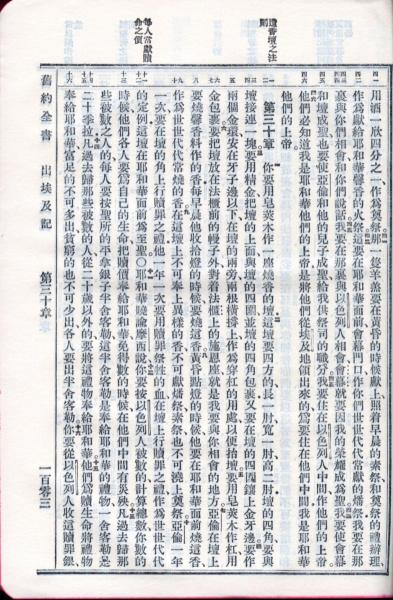 造香壇之法
每人當獻贖
命之價
用酒一欣四分之一、作爲奠祭那一隻羊羔要在黃昏的時候獻上照着早晨的素祭和奠祭的禮辦理、
作爲獻給耶和華馨香的火祭這要在耶和華面前會幕門口作你們世世代代常獻的燔祭我要在那
裏與你們相會和你們說話我要在那裏與以色列人相會會幕就要因我的榮耀成爲聖我要使會幕
和壇成聖也要使亞倫和他的兒子成聖給我供祭司的職分我要住在以色列人中間作他們的上帝、
他們必知道我是耶和華他們的上帝是將他們從埃及地領出來的爲要住在他們中間我是耶和華
他們的上帝
第三十章 你要用皂莢木作一座燒香的壇這壇要四方的長一肘寬一肘高二肘壇的四角要與
壇接連一塊要用精金把壇的上面與壇的四圍並壇的四角包裹又要在壇的四圍鑲上金牙邊要作
兩個金環安在牙子邊以下在壇的兩旁兩根橫撐上作爲穿杠的用處以便抬壇要用皂莢木作杠用
金包裹要把壇放在法櫃前的幔子外對着法櫃上的施恩座就是我要與你相會的地方亞倫在壇上
要燒馨香料作的香每早晨他收拾燈的時候要燒這香黃昏點燈的時候他要在耶和華面前燒這香、
作爲世世代代常燒的香在這壇上不可奉上異樣的香不可獻燔祭素祭也不可澆上奠祭亞倫一年
一次要在壇的角上行贖罪之禮他一年一次要用贖罪祭牲的血在壇上行贖罪之禮作爲世世代代
的定例這壇在耶和華面前爲至聖○耶和華曉諭摩西說你要按以色列人被數的計算總數你數的
時候他們各人要爲自己的生命把贖價奉給耶和華免得數的時候在他們中間有災殃凡過去歸那
些被數之人的每人要按聖所的平拿銀子半舍客勒這半舍客勒是奉給耶和華的禮物一舍客勒是
二十季拉凡過去歸那些被數的人從二十歲以外的要將這禮物奉給耶和華他們爲贖生命將禮物
奉給耶和華富足的不可多出貧窮的也不可少出各人要出半舍客勒你要從以色列人收這贖罪銀
舊約全書 出埃及記 第三十章 一百零三